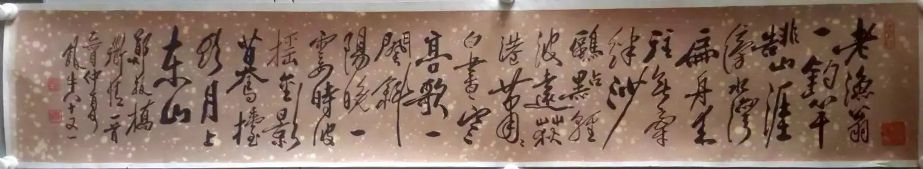 老漁翁
一釣竿
靠山涯
傍水灣
扁舟來
往無牽
絆沙
鷗點點輕
波遠荻
港蕭蕭
白晝寒
高歌一
闋斜
陽晚一
霎時波
搖金影
驀擡
頭月上
東山
鄭板橋
道情一首